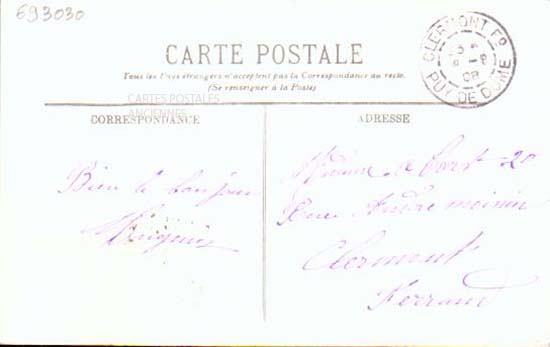 693030
CLERMONT Fd
PUY DE DOME
08
CARTE POSTALE
Tous les Pays étrangers n'acceptent pas la Correspondance au recto.
(Se renseigner à la Poste)
CARTES POSTALES
ANCIENNES
CORRESPONDANCE
ADRESSE
Bien le bonjour
Madame 20
Rue André moinin
Clermont
Ferrand